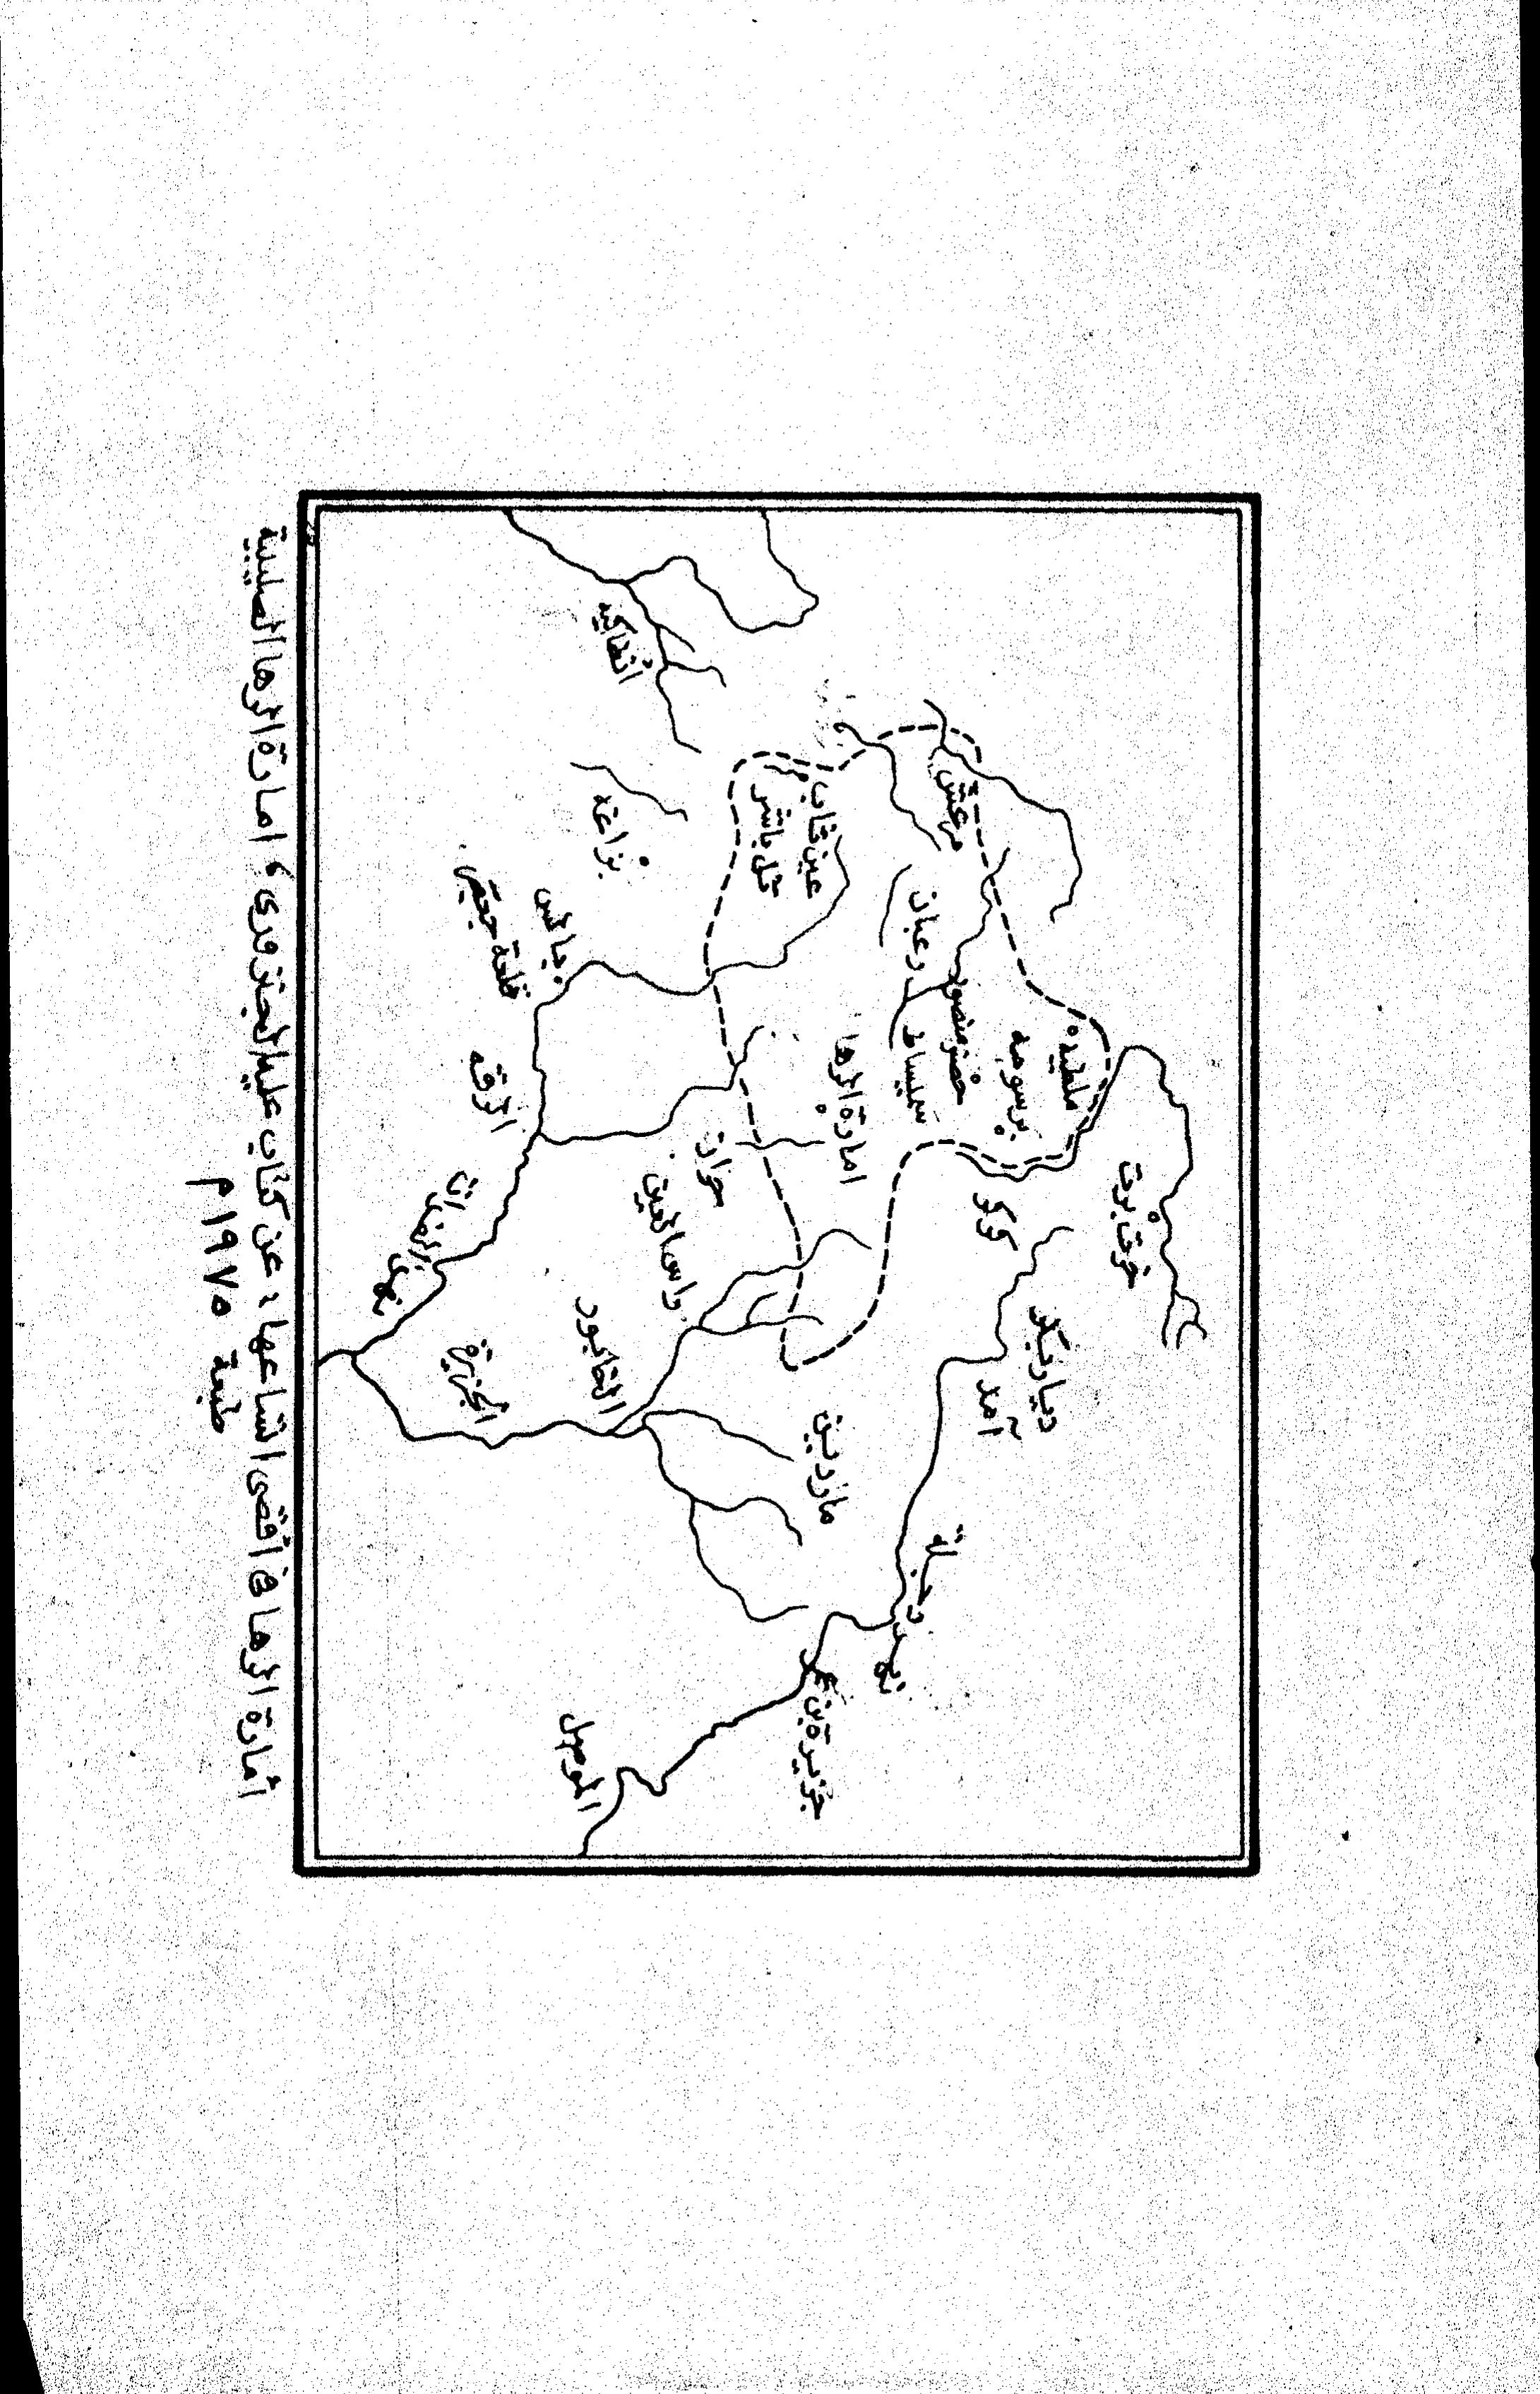 خرت برت
ملطيه
برسومه
كركر
ديار بكر
آمد
مرعش
حصن منصور
رعبان
سميساط
نهر دجلة
عين تاب
تل باشر
امارة الرها
ماردين
جزيرة بن عمر
حران
راس العين
انطاكيه
بزاعه
الخابور
الموصل
بالس
قلعة جعبر
الرقه
الجزيرة
نهر الفرات
أمارة الرها في أقصى اتساعها : عن كتاب علية الجنزورى ، امارة الرها الصليبية
طبعة ١٩٧٥ م